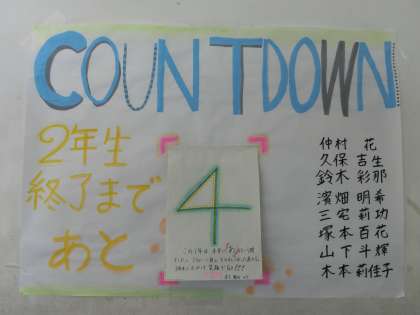 COUNTDOWN
2年生
終了まで
あと
4
この1年は
仲村 花
久保 吉生
鈴木 彩那
濱畑 明希
三宅 莉功
塚本 百花
山下 斗輝
木本 莉佳子